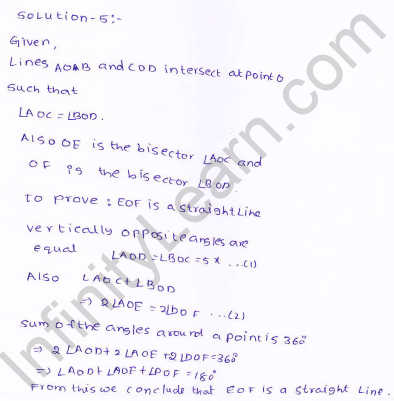 Solution-5:-
Given,
Lines AOAB and COD intersect at point O
Such that
∠AOC = ∠BOD.
Also OE is the bisector ∠AOC and
OF is the bisector ∠BOD.
To prove : EOF is a straight line
vertically opposite angles are
equal ∠AOD = ∠BOC = 5x ...(1)
Also ∠AOC + ∠BOD
⇒ 2∠AOE = 2∠DOF ...(2)
Sum of the angles around a point is 360°
⇒ 2∠AOD + 2∠AOE + 2∠DOF = 360°
⇒ ∠AOD + ∠AOF + ∠DOF = 180°
From this we conclude that EOF is a straight line.
InfinityLearn.com